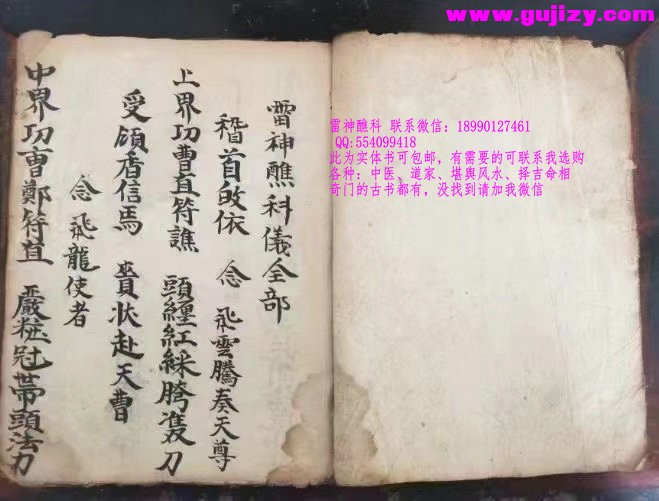 www.gujizy.com
雷神醮科 联系微信：18990127461
QQ:554099418
此为实体书可包邮，有需要的可联系我选购
各种：中医、道家、堪舆风水、择吉命相
奇门的古书都有，没找到请加我微信
雷神醮科儀全部
稽首皈依 念 飛雲騰奏天尊
上界功曹直符譙 頭纏紅綵胯雙刀
受頒香信焉 賫状赴天曹
念 飛龍使者
中界功曹鄭符直 嚴粧冠帶頭法力